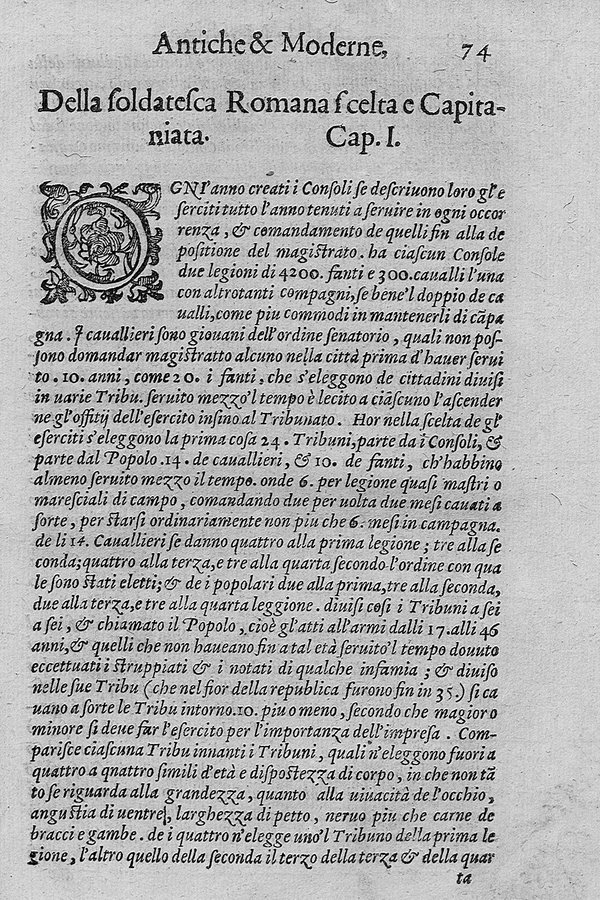 Antiche & Moderne, 74
Della soldatesca Romana scelta e Capita-
niata. Cap. I.
OGNI'anno creati i Consoli se descriuono loro gl'e
serciti tutto l'anno tenuti a seruire in ogni occor
renza, & comandamento de quelli fin alla de
positione del magistrato. ha ciascun Console
due legioni di 4200. fanti e 300. caualli l'una
con altrotanti compagni, se bene'l doppio de ca
ualli, come piu commodi in mantenerli di cāpa
gna. I cauallieri sono giouani dell'ordine senatorio, quali non pos-
sono domandar magistratto alcuno nella città prima d'hauer serui
to. 10. anni, come 20. i fanti, che s'eleggono de cittadini diuisi
in uarie Tribu. seruito mezzo'l tempo è lecito a ciascuno l'ascender
ne gl'offitij dell'esercito insino al Tribunato. Hor nella scelta de gl'
eserciti s'eleggono la prima cosa 24. Tribuni, parte da i Consoli, &
parte dal Popolo. 14. de cauallieri, & 10. de fanti, ch'habbino
almeno seruito mezzo il tempo. onde 6. per legione quasi mastri o
maresciali di campo, comandando due per uolta due mesi cauati a
sorte, per starsi ordinariamente non piu che 6. mesi in campagna.
de li 14. Cauallieri se danno quattro alla prima legione; tre alla se
conda; quattro alla terza, e tre alla quarta secondo l'ordine con qua
le sono stati eletti; & de i popolari due alla prima, tre alla seconda,
due alla terza, e tre alla quarta leggione. diuisi cosi i Tribuni a sei
a sei, & chiamato il Popolo, cioè gl'atti all'armi dalli 17. alli 46
anni, & quelli che non haueano fin a tal età seruito'l tempo douuto
eccettuati i struppiati & i notati di qualche infamia; & diuiso
nelle sue Tribu (che nel fior della republica furono fin in 35.) si ca
uano a sorte le Tribu intorno. 10. piu o meno, secondo che magior o
minore si deue far l'esercito per l'importanza dell'impresa. Com-
parisce ciascuna Tribu innanti i Tribuni, quali n'eleggono fuori a
quattro a qnattro simili d'età e dispostezza di corpo, in che non tā
to se riguarda alla grandezza, quanto alla uiuacità de l'occhio,
angustia di uentre, larghezza di petto, neruo piu che carne de
bracci e gambe. de i quattro n'elegge uno'l Tribuno della prima le
gione, l'altro quello della seconda il terzo della terza & della quar
ta